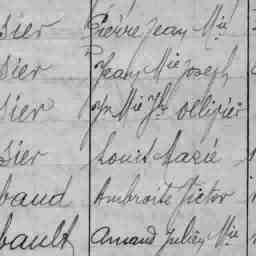 sier Pierre Jean Mie
sier Jean Mie Joseph
sier Jn Mie Jh Ollivier
sier Louis Marie
baud Ambroise Victor
bault Amand Julien Mie